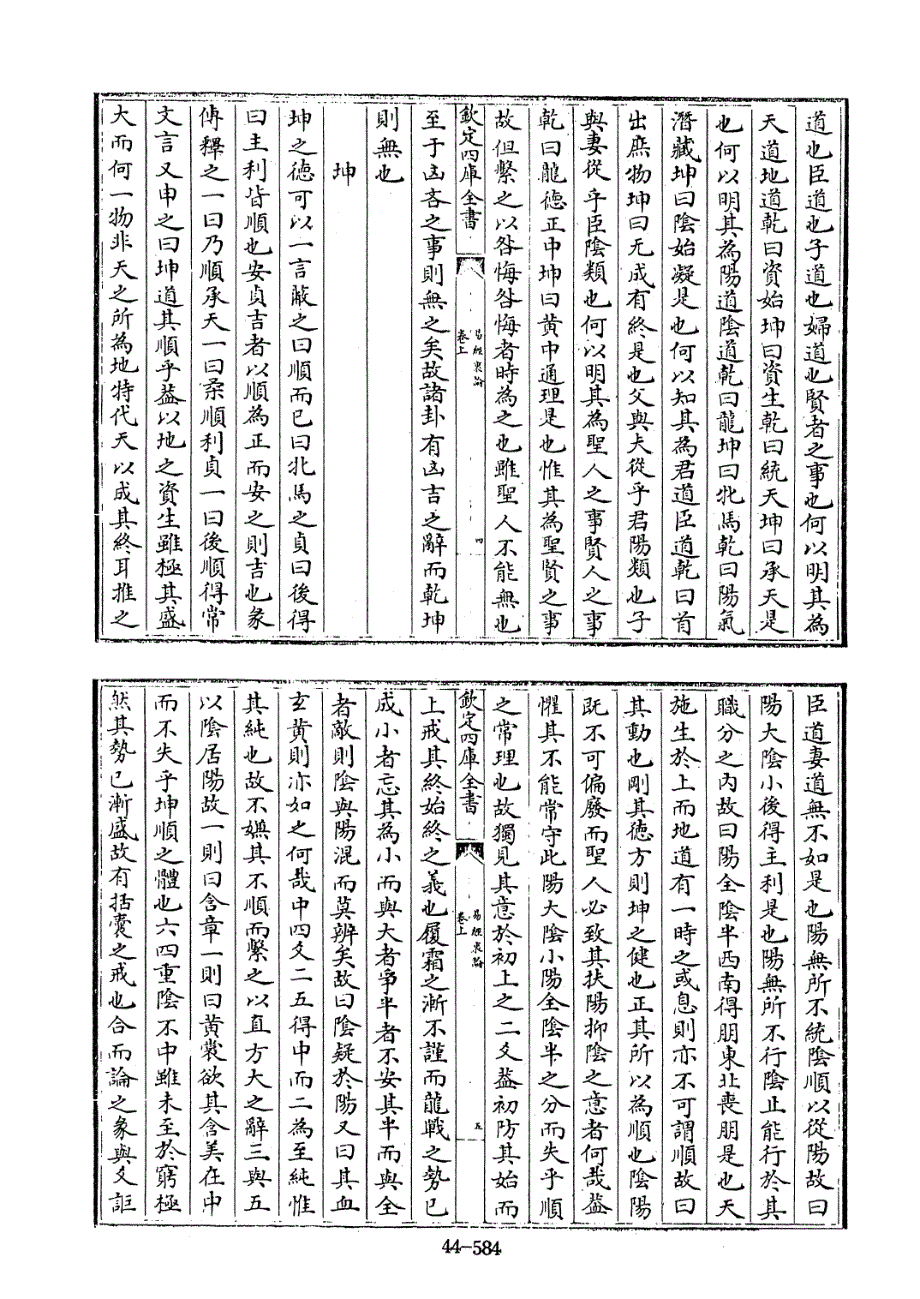 道也臣道也子道也婦道也賢者之事也何以明其為
天道地道乾曰資始坤曰資生乾曰統天坤曰承天是
也何以明其為陽道陰道乾曰龍坤曰牝馬乾曰陽氣
潛藏坤曰陰始凝是也何以知其為君道臣道乾曰首
出庶物坤曰无成有終是也父與夫從乎君陽類也子
與妻從乎臣陰類也何以明其為聖人之事賢人之事
乾曰龍德正中坤曰黄中通理是也惟其為聖賢之事
故但繫之以咎悔咎悔者時為之也雖聖人不能無也
欽定四庫全書
易經衷論
卷上
四
至于凶吝之事則無之矣故諸卦有凶吉之辭而乾坤
則無也
坤
坤之德可以一言蔽之曰順而已曰牝馬之貞曰後得
曰主利皆順也安貞吉者以順為正而安之則吉也彖
傳釋之一曰乃順承天一曰柔順利貞一曰後順得常
文言又申之曰坤道其順乎葢以地之資生雖極其盛
大而何一物非天之所為地特代天以成其終耳推之
臣道妻道無不如是也陽無所不統陰順以從陽故曰
陽大陰小後得主利是也陽無所不行陰止能行於其
職分之内故曰陽全陰半西南得朋東北喪朋是也天
施生於上而地道有一時之或息則亦不可謂順故曰
其動也剛其德方則坤之健也正其所以為順也陰陽
既不可偏廢而聖人必致其扶陽抑陰之意者何哉葢
懼其不能常守此陽大陰小陽全陰半之分而失乎順
之常理也故獨見其意於初上之二爻葢初防其始而
欽定四庫全書
易經衷論
卷上
五
上戒其終始終之義也履霜之漸不謹而龍戰之勢已
成小者忘其為小而與大者爭半者不安其半而與全
者敵則陰與陽混而莫辨矣故曰陰疑於陽又曰其血
玄黄則亦如之何哉中四爻二五得中而二為至純惟
其純也故不嫌其不順而繫之以直方大之辭三與五
以陰居陽故一則曰含章一則曰黄裳欲其含美在中
而不失乎坤順之體也六四重陰不中雖未至於窮極
然其勢已漸盛故有括囊之戒也合而論之象與爻詎
44-584